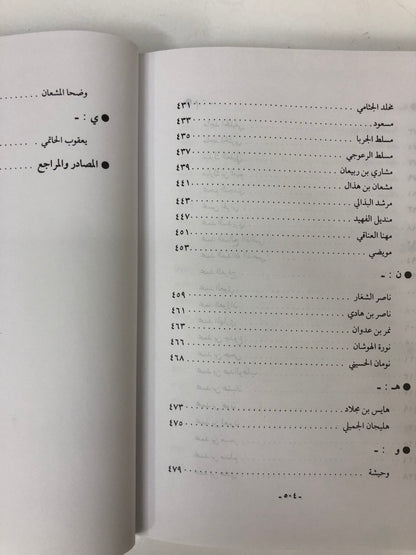 مخلد الجثامي ٤٣١
مسعود ٤٣٣
مسلط الجربا ٤٣٥
مسلط الرعوجي ٤٣٧
مشاري بن ربيعان ٤٣٩
مشعان بن هذال ٤٤١
مرشد البذالي ٤٤٣
منديل الفهيد ٤٤٧
مهنا العناقي ٤٥١
مويضي ٤٥٣
● ن : -
ناصر الشغار ٤٥٩
ناصر بن هادي ٤٦١
نمر بن عدوان ٤٦٣
نورة الهوشان ٤٦٦
نومان الحسيني ٤٦٨
● هـ : -
هايس بن مجلاد ٤٧٣
هليجان الجميلي ٤٧٥
● و : -
وحيشة ٤٧٩
- ٥٠٤ -
وضحا المشعان
● ي : -
يعقوب الحاتمي
● المصادر والمراجع